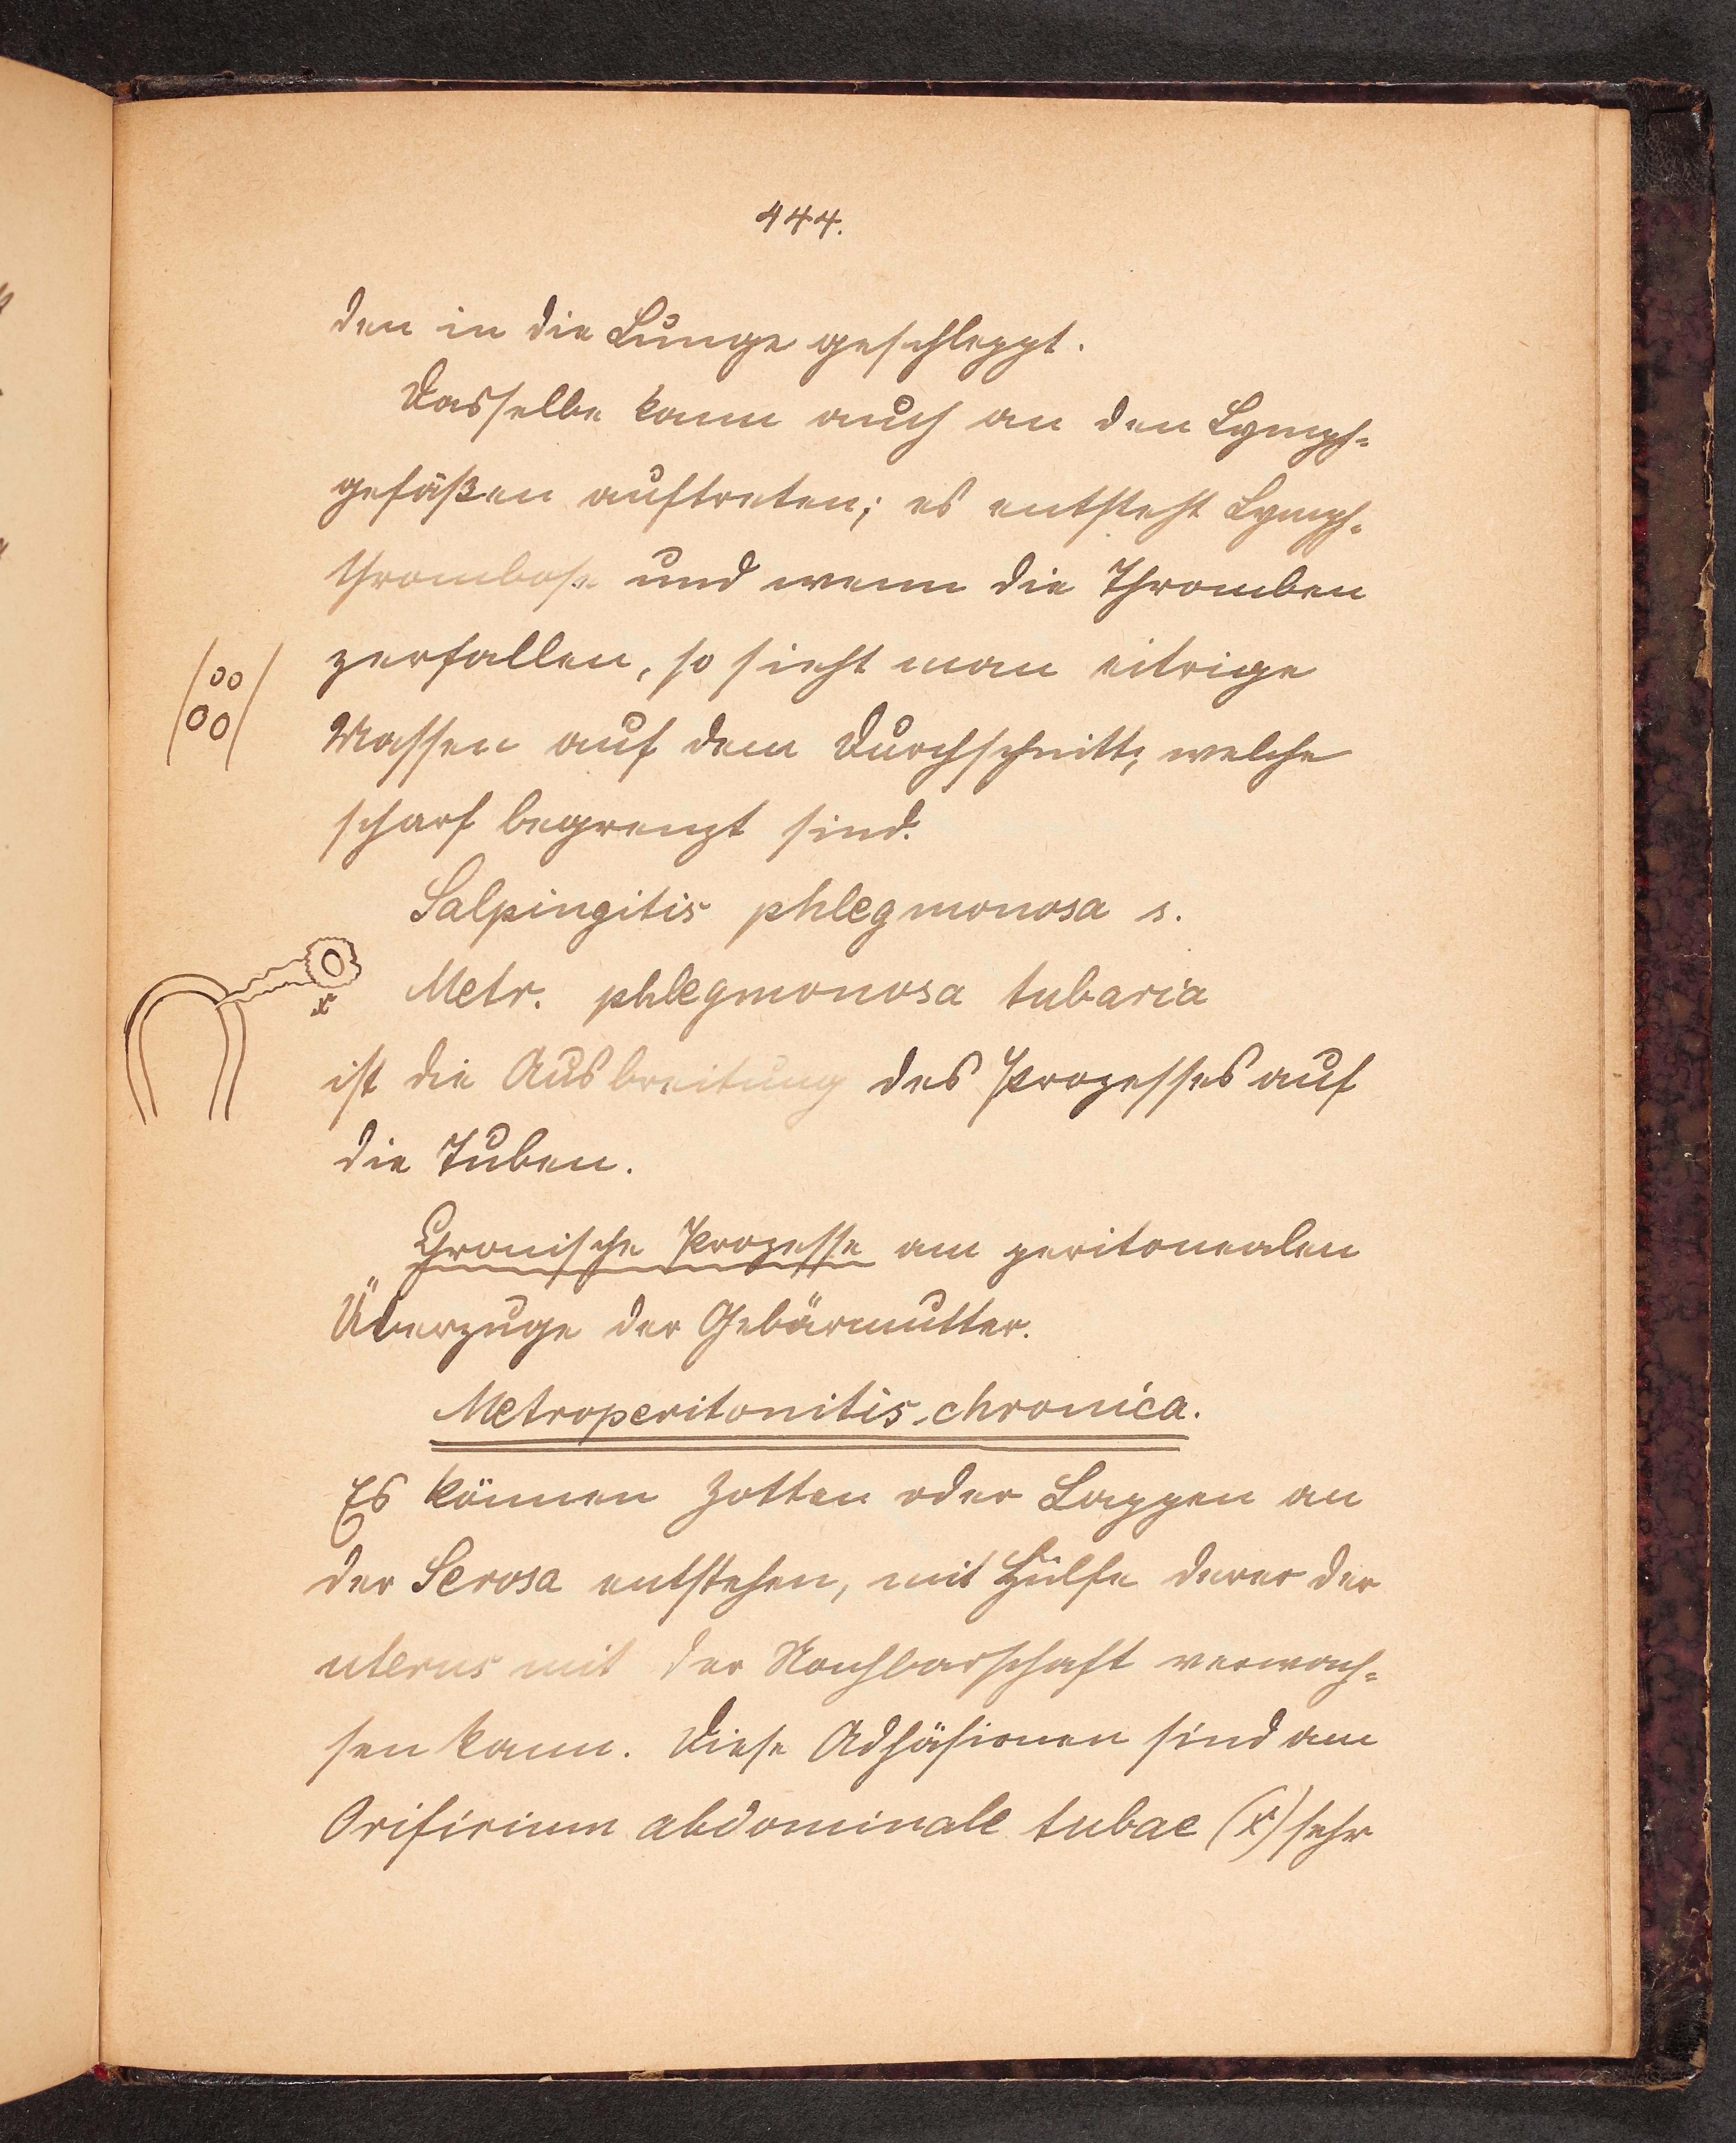 444.
den in die Lunge geschleppt.
Dasselbe kann auch an den Lymph-
gefäßen auftreten; es entsteht Lymph-
thrombose und wenn die Thromben
zerfallen, so sieht man eitrige
Massen auf dem Durchschnitt, welche
scharf begrenzt sind.
Salpingitis phlegmonosa s.
Metr. phlegmonosa tubaria
x
ist die Ausbreitung des Prozesses auf
die Tuben.
Chronische Prozesse am peritonealen
Überzuge der Gebärmutter.
Metroperitonitis chronica.
Es können Zotten oder Lappen an
der Serosa entstehen, mit Hülfe derer der
uterus mit der Nachbarschaft verwach-
sen kann. Diese Adhäsionen sind am
Orificium abdominale tubae (x) sehr